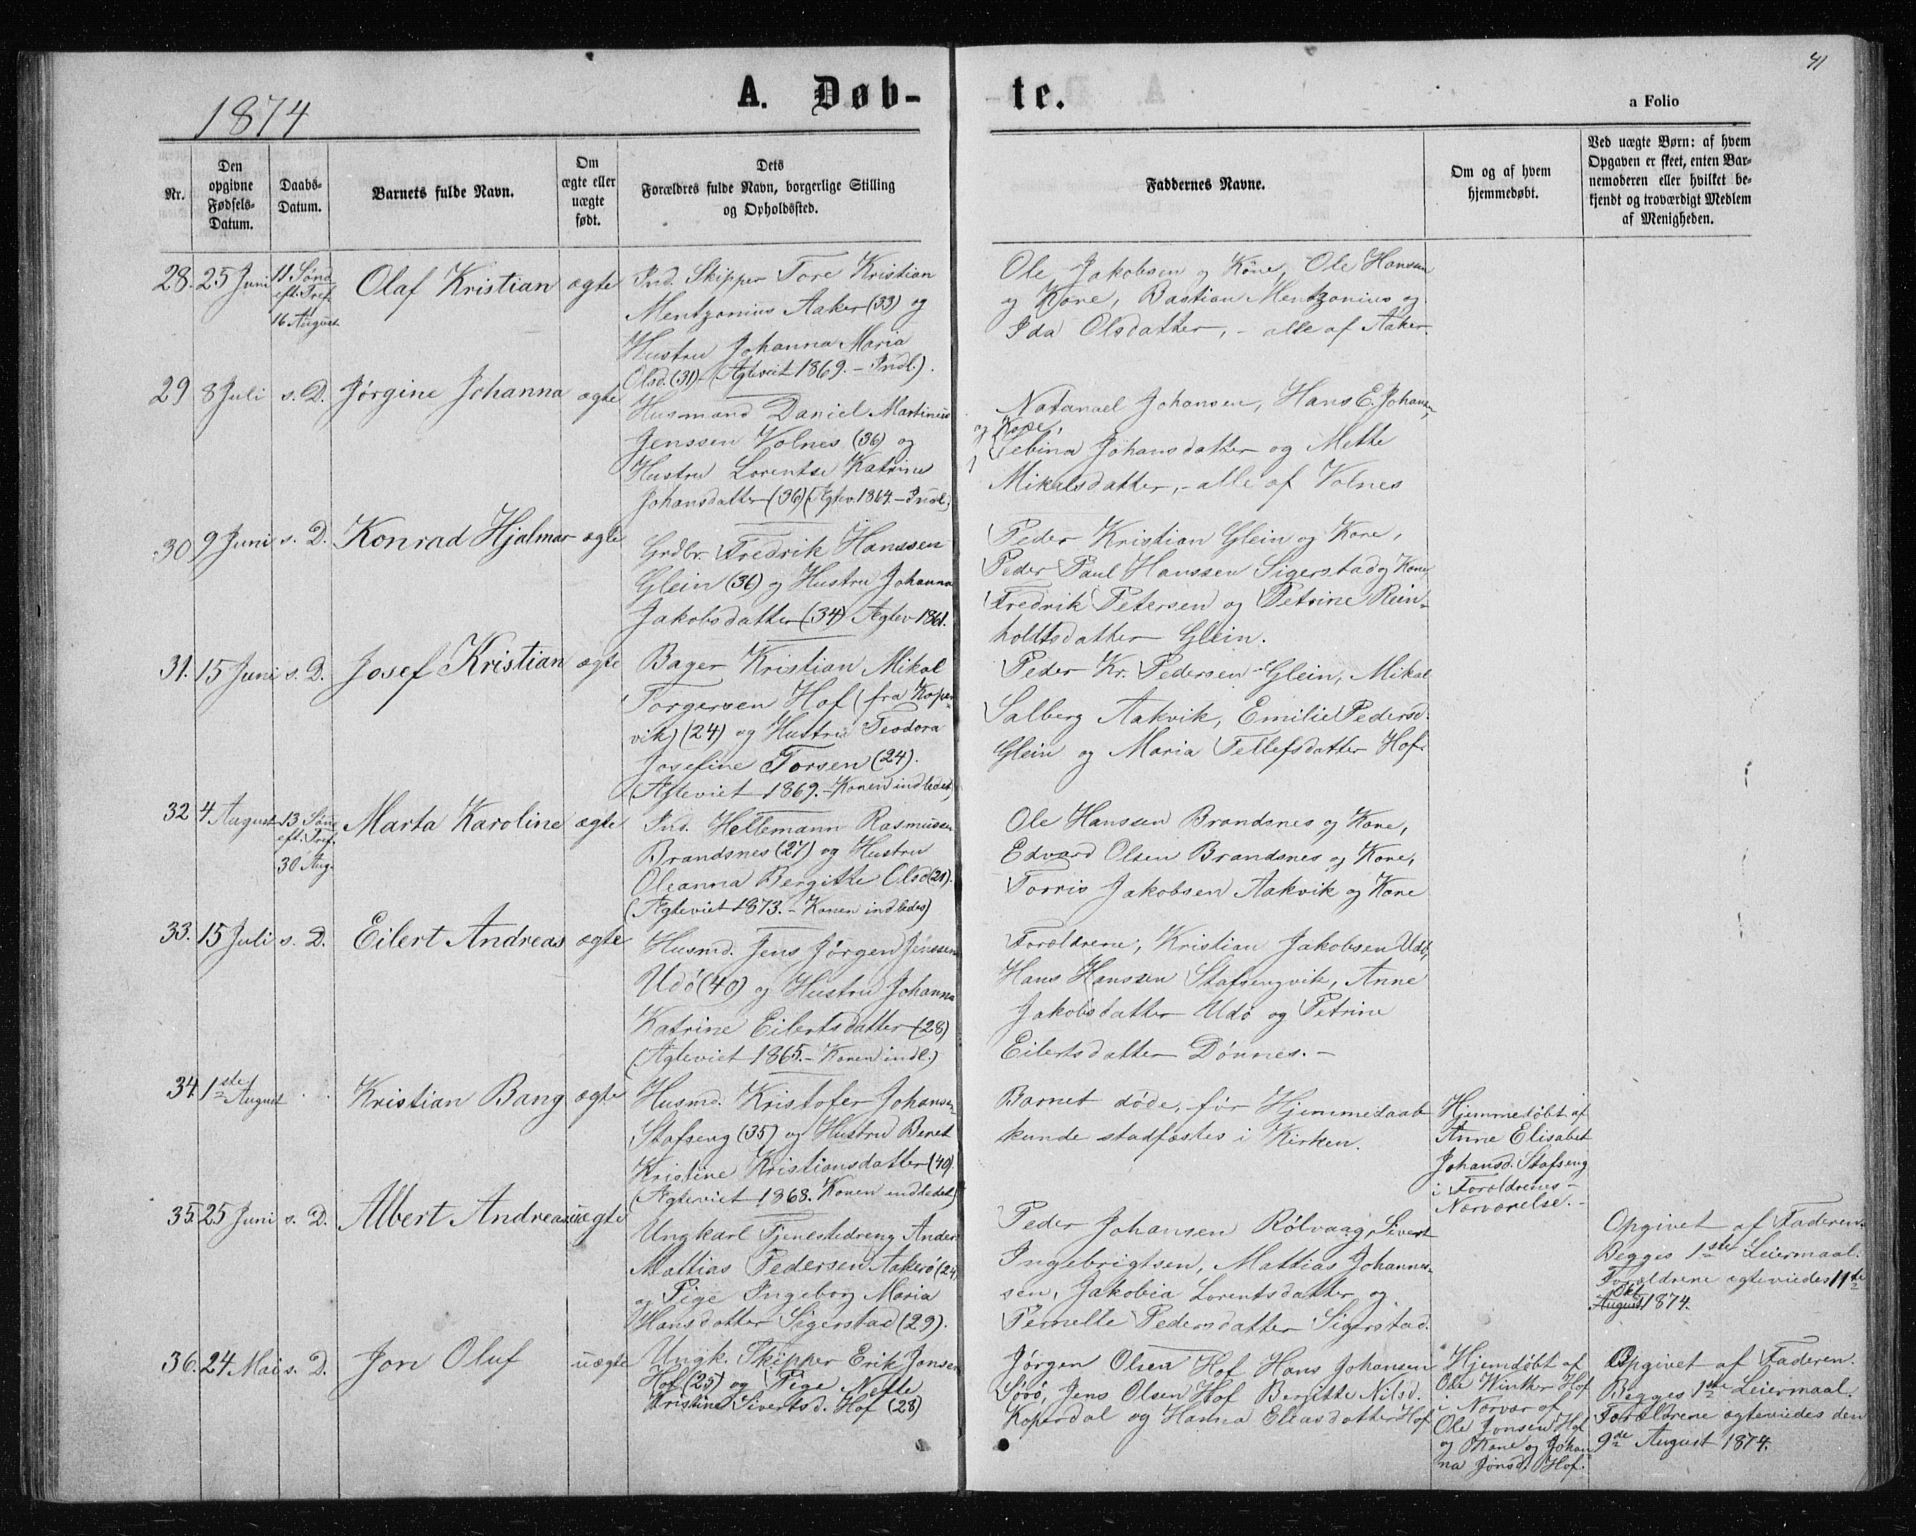 41
1874
A. Døb-
te.
a Folio
Nr.
Den
opgivne
Fødsels-
Datum.
Daabs-
Datum.
Barnets fulde Navn.
Om
ægte eller
uægte
født.
Dets
Forældres fulde Navn, borgerlige Stilling
og Opholdssted.
Faddernes Navne.
Om og af hvem
hjemmedøbt.
Ved uægte Børn: af hvem
Opgaven er skeet, enten Bar-
nemoderen eller hvilket be-
kjendt og troværdigt Medlem
af Menigheden.
28. 25 Juni
11 Sønd
eft. Tref.
16 August
Olaf Kristian
ægte
Ind. Skipper Tore Kristian
Mentzonius Aaker (33) og
Hustru Johanna Maria
Olsd. (31) (Ægteviet 1869. - Indl.).
Ole Jakobsen og Kone, Ole Hansen
og Kone, Bastian Mentzonius og
Ida Olsdatter, - alle af Aaker.
29 8 Juli s. D. Jørgine Johanna ægte
Husmand Daniel Martinus
Jenssen Volnes (36) og
Hustru Lorentse Katrine
Johansdatter (36) (Ægtev. 1864. - Indl.)
Natanael Johansen, Hans E. Johansen
og Kone,
Johansdatter og Mette
Mikalsdatter, - alle af Volnes
30 9 Juni s. D. Konrad Hjalmar ægte
Grdbr. Fredrik Hanssen
Glein (36) og Hustru Johanna
Jakobsdatter (34) Ægtev. 1861.
Peder Kristian Glein og Kone,
Peder Paul Hanssen Sigerstad og Kone,
Fredrik Petersen og Petrine Rein-
holdtsdatter Glein.
31. 15 Juni s. D. Josef Kristian ægte
Bager Kristian Mikal
Torgersen Hof (fra Koper-
vik) (24) og Hustru Teodora
Josefine Torsen (24).
(Ægteviet 1869. - Konen indledet)
Peder Kr. Pedersen Glein, Mikal
Salberg Aakvik, Emilie Pedersd.
Glein og Maria Tellefsdatter Hof.
32 4 August
13 Sønd
eft. Tref.
30 Aug.
Marta Karoline ægte
Ind. Heltemann Rasmussen
Brandsnes (27) og Hustru
Oleanna Bergitte Olsd (21).
(Ægteviet 1873. - Konen indledes)
Ole Hanssen Brandsnes og Kone,
Edvard Olsen Brandsnes og Kone,
Torris Jakobsen Aakvik og Kone
33. 15 Juli s. D. Eilert Andreas ægte
Husmd. Jens Jørgen Jenssen
Udö (40) og Hustru Johanna
Katrine Eilertsdatter (28)
(Ægteviet 1865. - Konen indl.)
Forældrene, Kristian Jakobsen Udö,
Hans Hanssen Stafsengvik, Anne
Jakobsdatter Udö og Petrine
Eilertsdatter Dönnes. -
34. 1ste August
Kristian Bang ægte
Husmd. Kristofer Johansen
Stafseng (35) og Hustru Beret
Kristine Kristiansdatter (40)
(Ægteviet 1868. Konen indledet)
Barnet døde, før Hjemmedaab
kunde stadfæstes i Kirken.
Hjemmedøbt af
Anne Elisabet
Johansd. Stafseng
i Forældrenes
Nærværelse. -
35. 25 Juni s. D. Albert Andreas uægte
Ungkarl Tjenestedreng Anders
Mattias Pedersen Aakerö (24)
og Pige Ingeborg Maria
Hansdatter Sigerstad (29).
Peder Johansen Rölvaag, Sivert
Ingebrigtsen, Mattias Johannes-
sen, Jakobia Lorentsdatter og
Pernelle Pedersdatter Sigerstad.
Opgivet af Faderen.
Begges 1ste Leiermaal.
Forældrene ægteviedes 11te
Okt.
August 1874.
36. 24 Mai s. D. Jon Oluf uægte
Ungk. Skipper Erik Jonsen
Hof (25) og Pige Nelle
Kristine Sivertsd. Hof (28)
Jørgen Olsen Hof Hans Johansen
Sörö, Jens Olsen Hof Bergitte Nilsd.
Koperdal og Hanna Eliasdatter Hof
Hjemdøbt af
Ole Winther Hof
i Nærvær af
Ole Jonsen Hof
og Kone og Johan
na Jonsd. Hof.
Opgivet af Faderen.
Begges 1ste Leiermaal.
Forældrene ægteviedes den
9de August 1874.